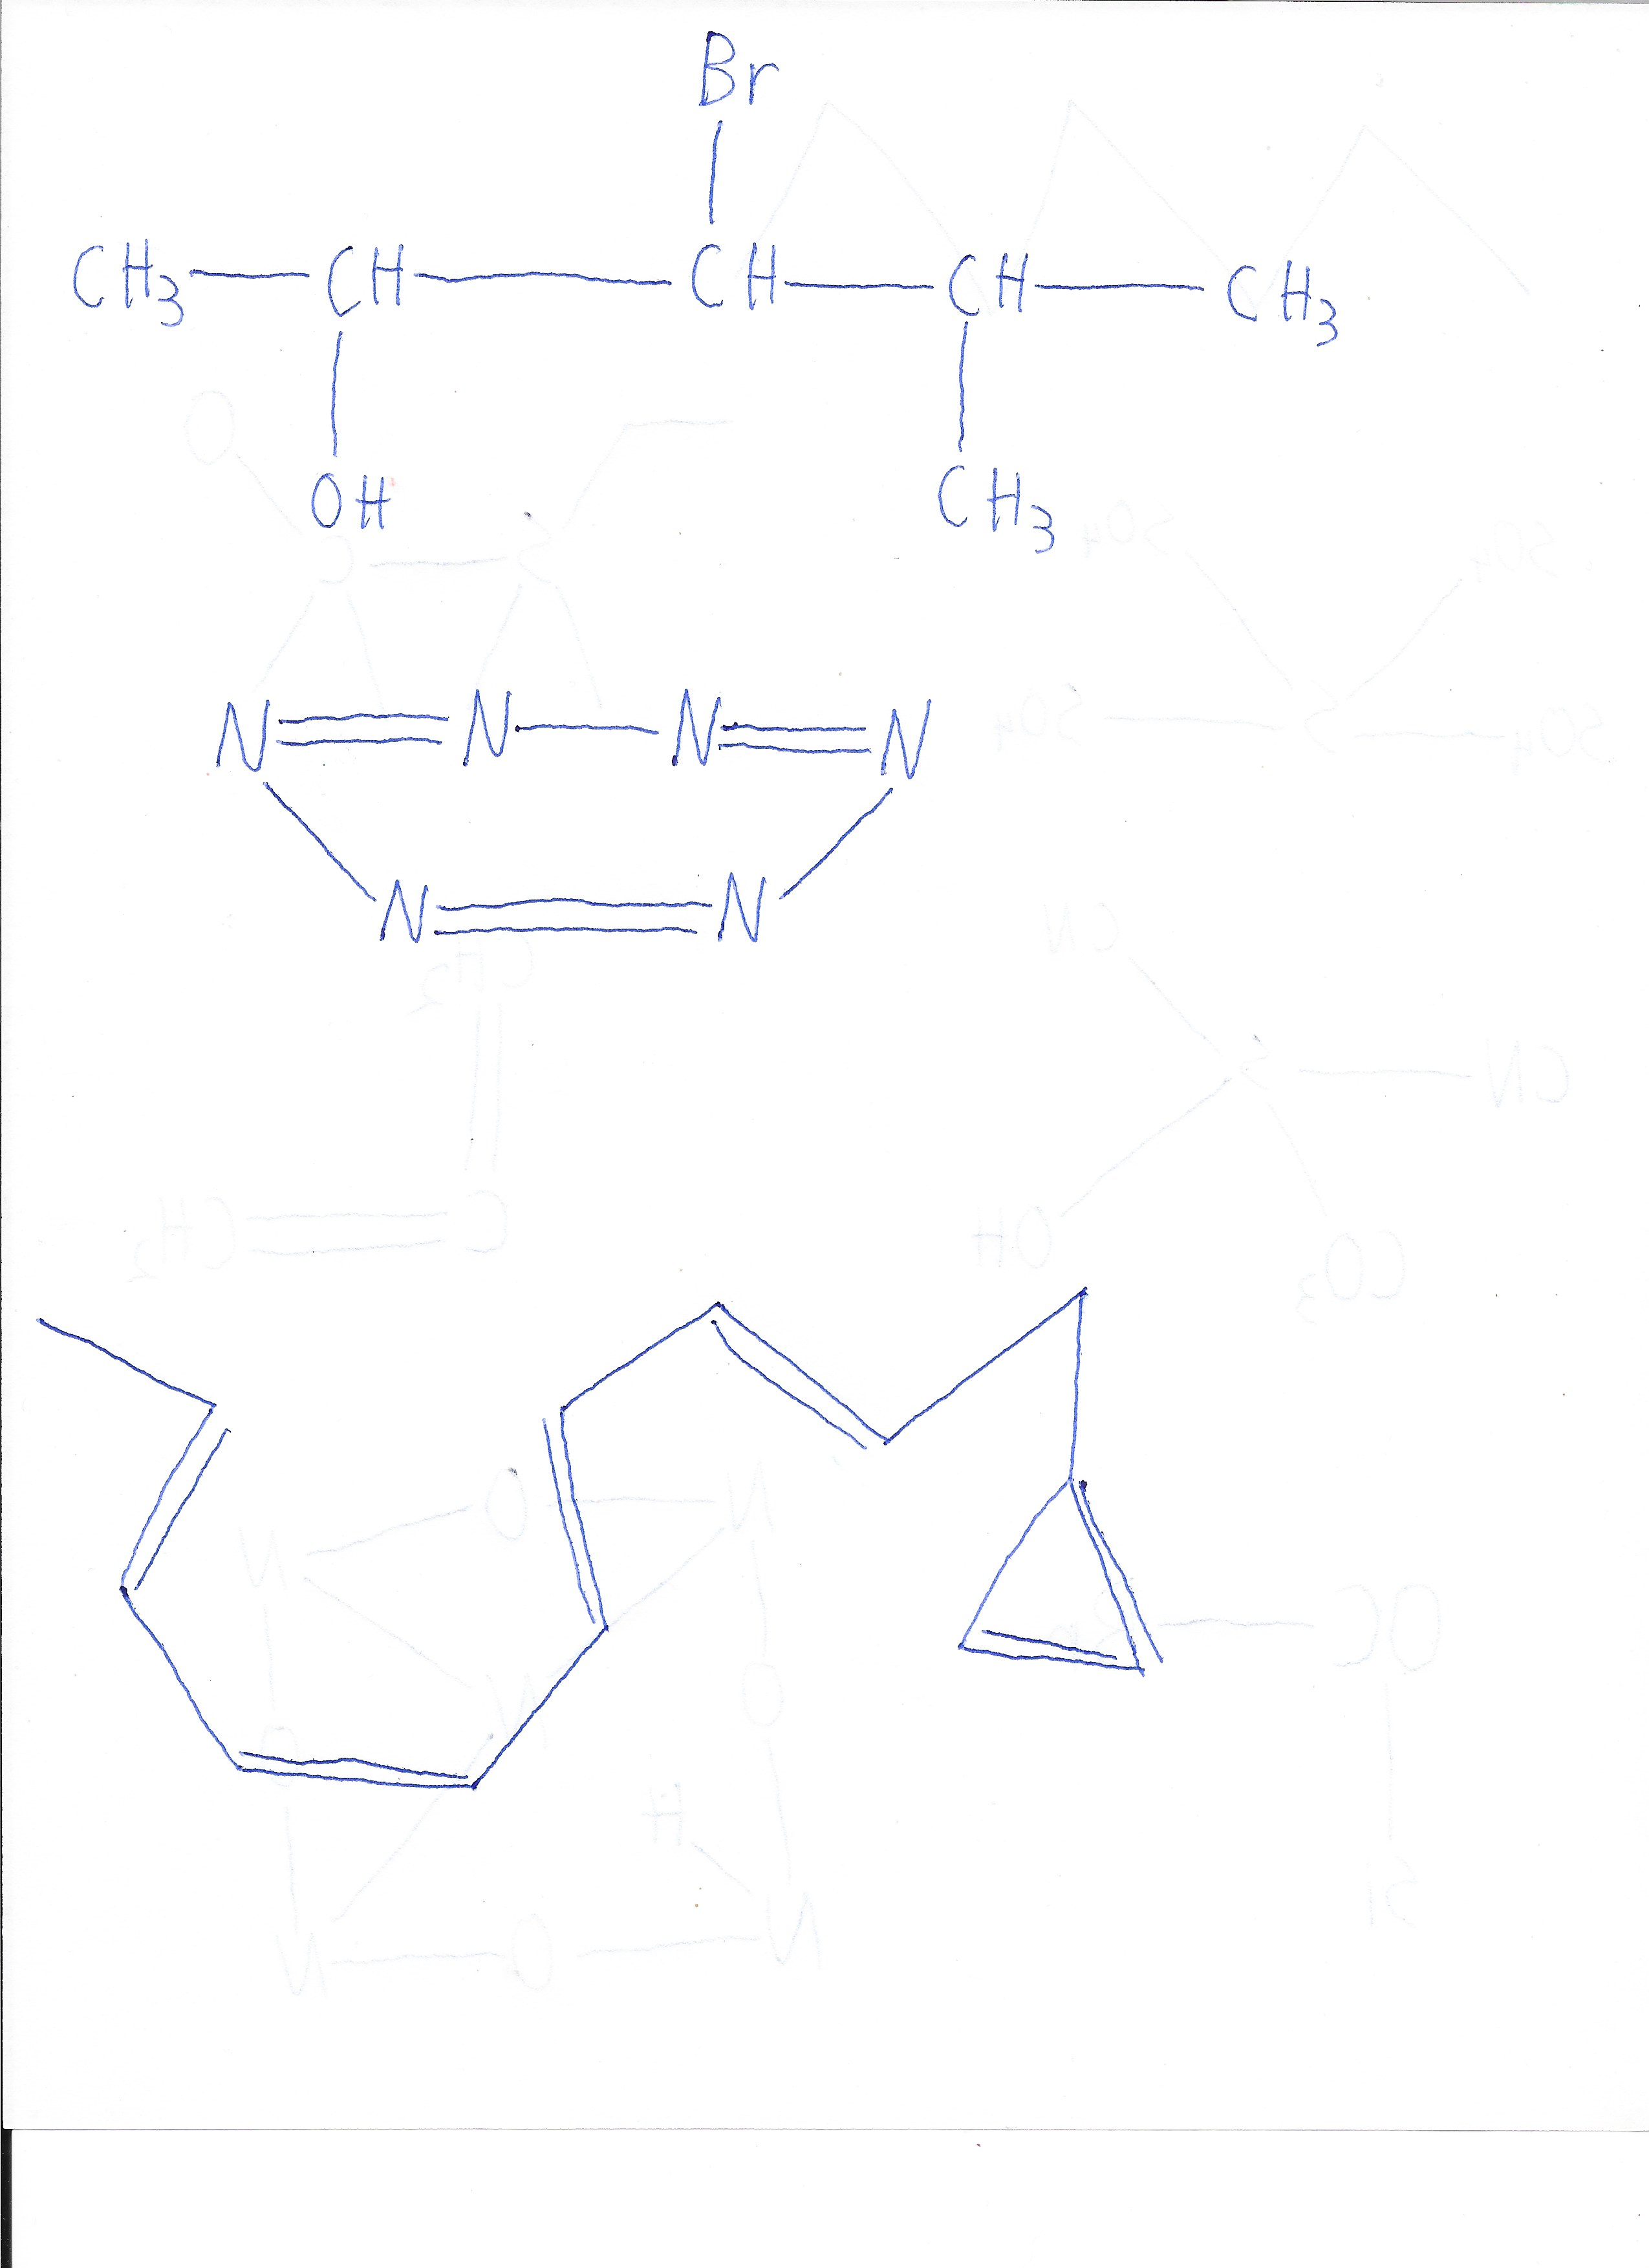 Br
CH3 CH CH CH CH3
OH CH3
N N N N
N N